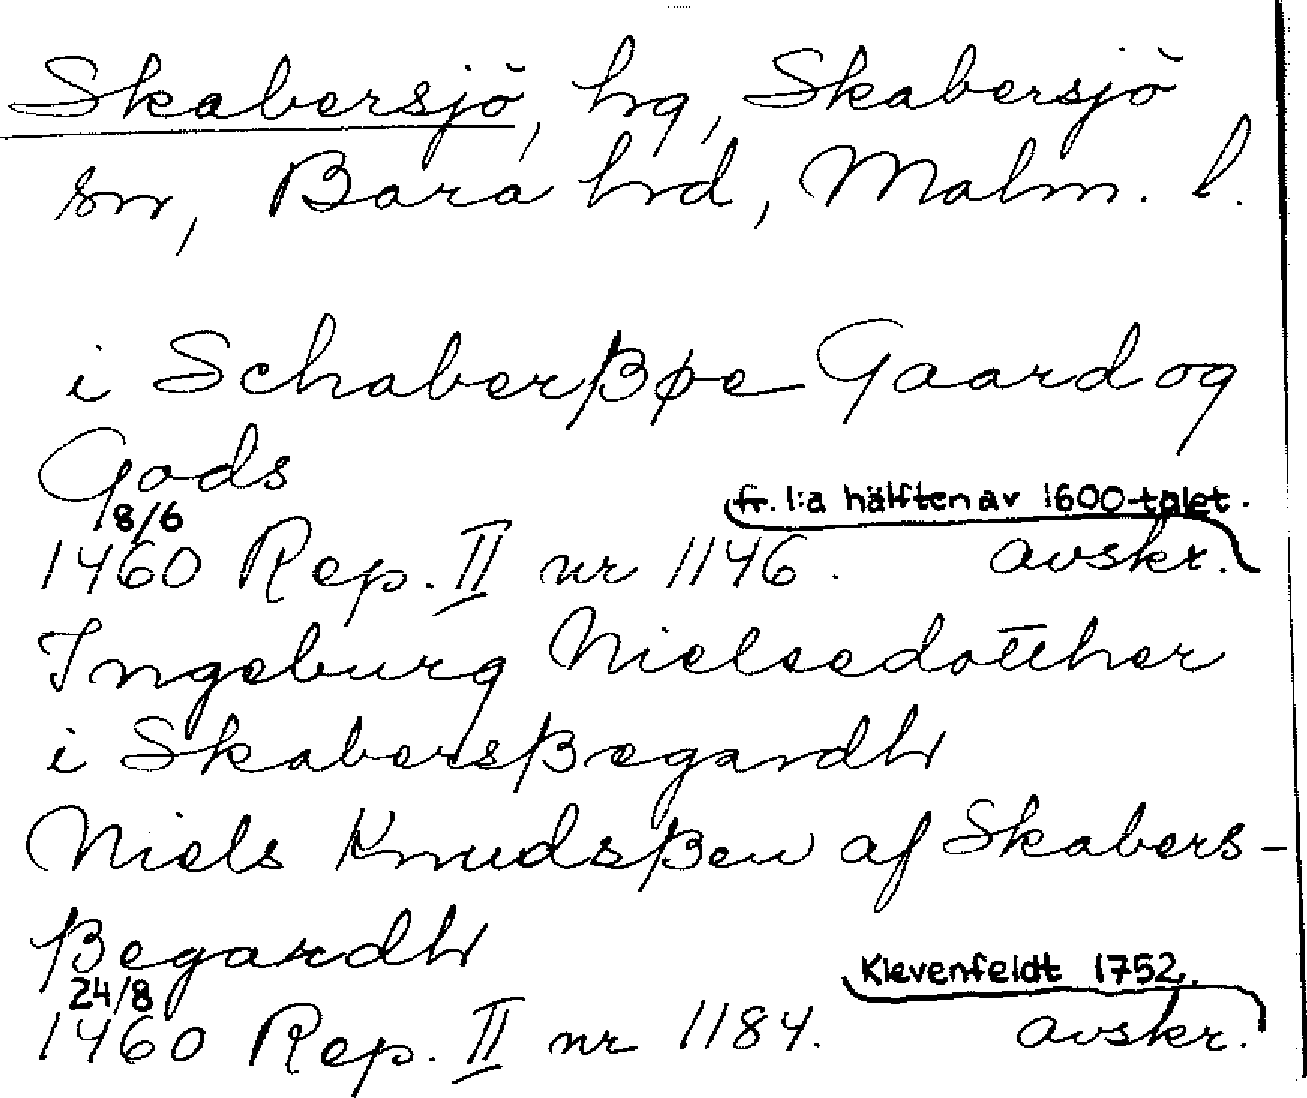 Skabersjö, hg, Skabersjö
sn, Bara hrd, Malm. l.
i Schaberßøe Gaard og
Gods
8/6 fr. 1:a hälften av 1600-talet.
1460 Rep. II nr 1146. avskr.
Ingeburg Nielsedotther
i Skabersßegardh
Niels Knudsßen af Skabers-
ßegardh
24/8 Klevenfeldt 1752.
1460 Rep. II nr 1184. avskr.